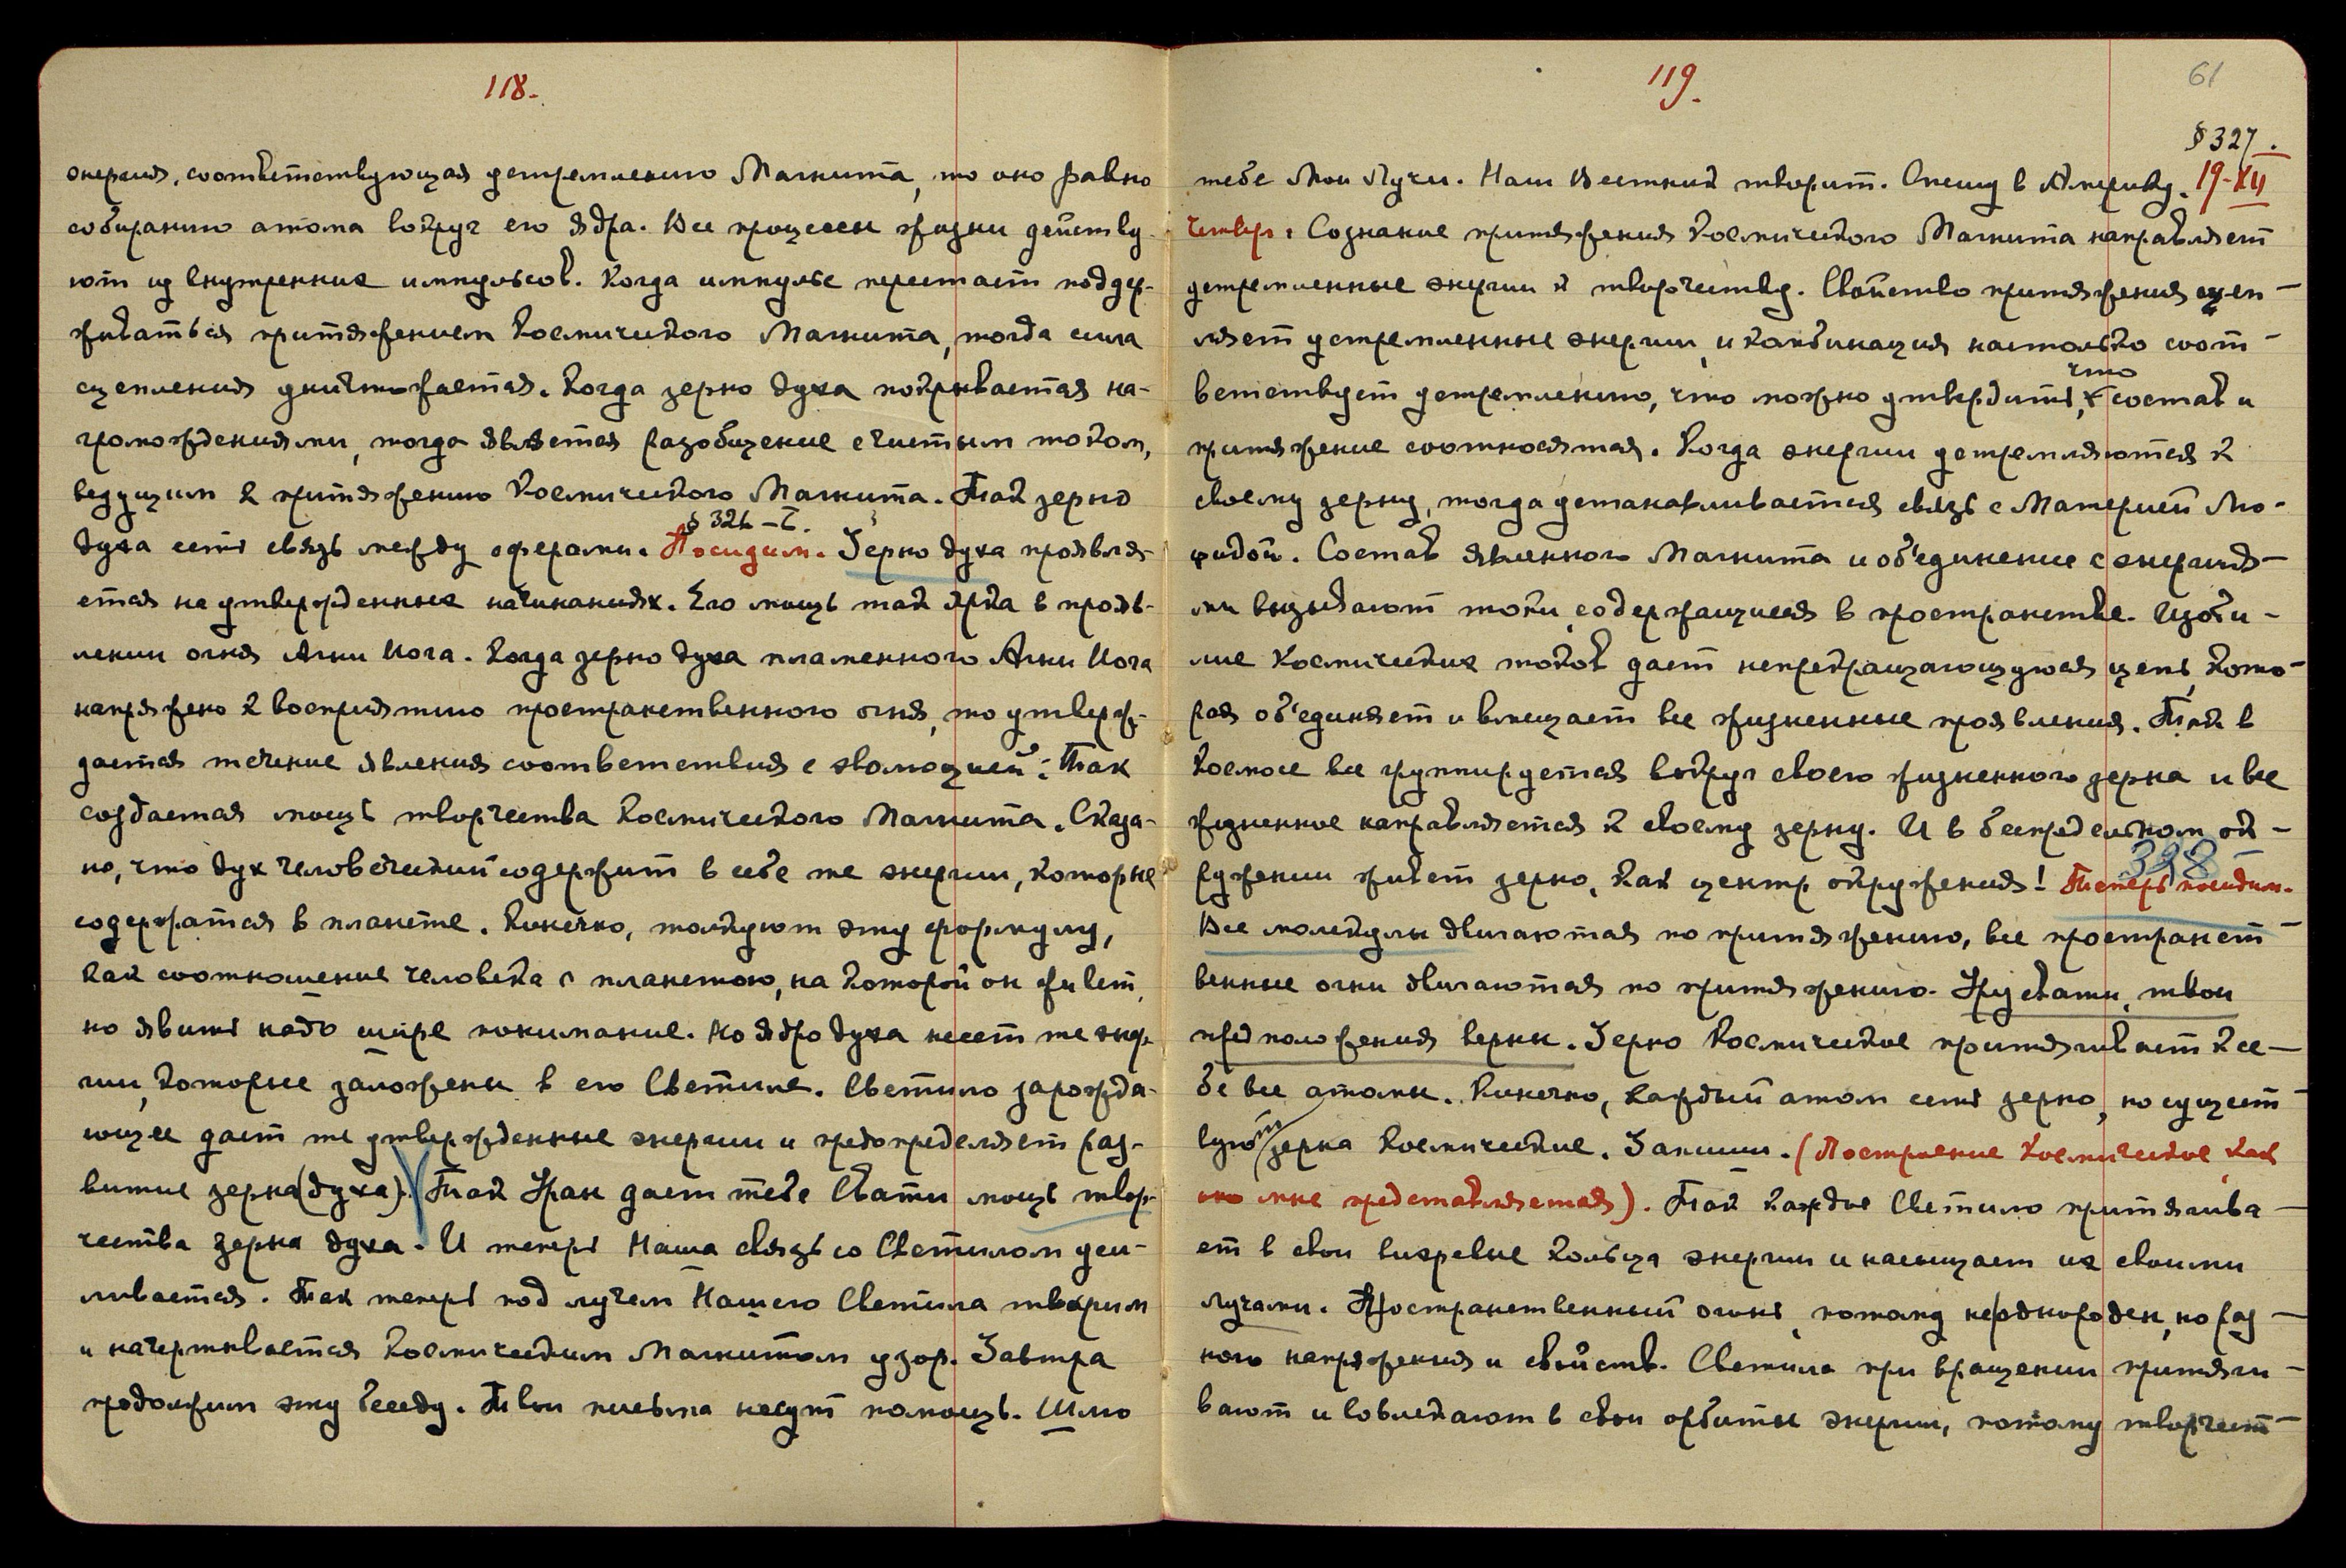 118.
энергия, соответствующая устремлению Магнита, то оно равно
собиранию атома вокруг его ядра. Все процессы жизни действу-
ют из внутренних импульсов. Когда импульс перестает поддер-
живаться притяжением Космического Магнита, тогда сила
сцепления уничтожается. Когда зерно духа покрывается на-
громождениями, тогда является разобщение с чистым током,
ведущим к притяжению Космического Магнита. Так зерно
§ 326 - I.
духа есть связь между сферами. Посидим. Зерно духа проявля-
ется на утвержденных начинаниях. Его мощь так ярка в прояв-
лении огня Агни Йога. Когда зерно духа пламенного Агни Йога
напряжено к восприятию пространственного огня, то утверж-
дается течение явления соответствия с эволюцией: Так
создается мощь творчества Космического Магнита. Сказа-
но, что дух человеческий содержит в себе те энергии, которые
содержатся в планете. Конечно, толкуют эту формулу,
как соотношение человека с планетою, на которой он живет,
но явить надо шире понимание. Но ядро духа несет те энер-
гии, которые заложены в его Светиле. Светило зарожда-
ющее дает те утвержденные энергии и предопределяет раз-
витие зерна (духа). (Так Уран дает тебе Свати мощь твор-
чества зерна духа. И теперь Наша связь со Светилом уси-
ливается. Так теперь под лучем Нашего Светила творим
и начертывается Космическим Магнитом узор. Завтра
продолжим эту беседу. Твои письма несут помощь. Шлю
119.
61
§ 327.
тебе Мои Лучи. Наш Вестник творит. Спешу в Америку. 19-XII
Четверг. Сознание притяжения Космического Магнита направляет
устремленные энергии к творчеству. Свойство притяжения сцеп-
ляет устремленные энергии, и комбинация настолько соот-
что
ветствует устремлению, что можно утвердить, состав и
притяжение соотносятся. Когда энергии устремляются к
своему зерну, тогда устанавливается связь с Материей Лю-
цидой. Состав явленного Магнита и об'единение с энергия-
ми вызывают токи, содержащиеся в пространстве. Изоби-
лие Космических токов дает непрекращающуюся цепь, кото-
рая об'единяет и вмещает все жизненные проявления. Так в
Космосе все группируется вокруг своего жизненного зерна и все
жизненное направляется к своему зерну. И в беспредельном ок-
328
ружении живет зерно, как центр окружения! Теперь посидим.
Все молекулы двигаются по притяжению, все пространст-
венные огни двигаются по притяжению. Урусвати, твои
предположения верны. Зерно Космическое притягивает к се-
бе все атомы. Конечно, каждый атом есть зерно, но сущест-
вуют зерна Космические. Запиши. (Построение Космическое как
оно мне представляется). Так каждое Светило притягива-
ет в свои вихревые кольца энергии и насыщает их своими
лучами. Пространственный огонь, потому неоднороден, но раз-
ного напряжения и свойств. Светила при вращении притяги-
вают и вовлекают в свои орбиты энергии, потому творчест-